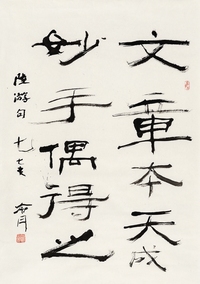 文章本天成
妙手偶得之
陆游句